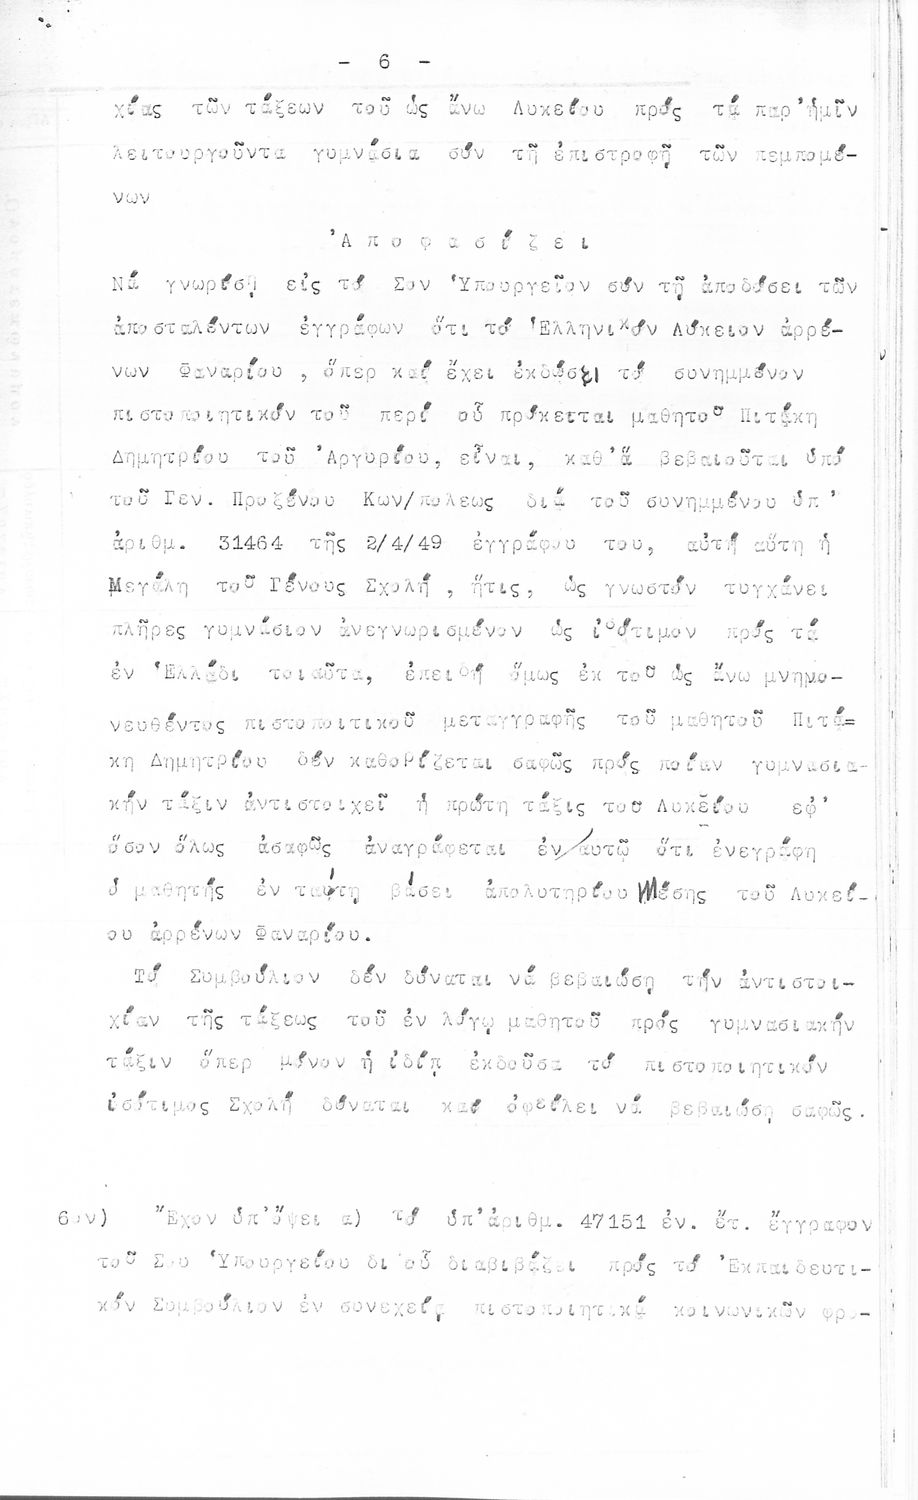 - 6 -
χίας τῶν τάξεων τοῦ ὡς ἄνω Λυκείου πρός τά παρ'ἡμῖν
λειτουργοῦντα γυμνάσια σύν τῇ ἐπιστροφῇ τῶν πεμπομέ-
νων
'Α π ο φ α σ ί ζ ε ι
Νά γνωρίσῃ εἰς τό Σον Ὑπουργεῖον σύν τῇ ἀποδόσει τῶν
ἀποσταλέντων ἐγγράφων ὅτι τό Ἑλληνικόν Λύκειον ἀρρέ-
νων Φαναρίου , ὅπερ καί ἔχει ἐκδόσει τό συνημμένον
πιστοποιητικόν τοῦ περί οὗ πρόκειται μαθητοῦ Πιτάκη
Δημητρίου τοῦ 'Αργυρίου, εἶναι, καθ'ἅ βεβαιοῦται ὑπό
τοῦ Γεν. Προξένου Κων/πολεως διά τοῦ συνημμένου ὑπ'
ἀριθμ. 31464 τῆς 2/4/49 ἐγγράφου του, αὐτή αὕτη ἡ
Μεγάλη τοῦ Γένους Σχολή , ἥτις, ὡς γνωστόν τυγχάνει
πλῆρες γυμνάσιον ἀνεγνωρισμένον ὡς ἰσότιμον πρός τά
ἐν Ἑλλάδι τοιαῦτα, ἐπειδή ὅμως ἐκ τοῦ ὡς ἄνω μνημο-
νευθέντος πιστοποιτικοῦ μεταγγραφῆς τοῦ μαθητοῦ Πιτά=
κη Δημητρίου δέν καθορίζεται σαφῶς πρός ποίαν γυμνασια-
κήν τάξιν ἀντιστοιχεῖ ἡ πρώτη τάξις τοῦ Λυκείου εφ'
ὅσον ὅλως ἀσαφῶς ἀναγράφεται ἐν/αυτῷ ὅτι ἐνεγράφη
ὁ μαθητής ἐν ταύτῃ βάσει ἀπολυτηρίου Μέσης τοῦ Λυκεί-
ου ἀρρένων Φαναρίου.
Τό Συμβούλιον δέν δύναται νά βεβαιώσῃ τήν ἀντιστοι-
χίαν τῆς τάξεως τοῦ ἐν λόγῳ μαθητοῦ πρός γυμνασιακήν
τάξιν ὅπερ μόνον ἡ ἰδίᾳ ἐκδοῦσα τό πιστοποιητικόν
ἰσότιμος Σχολή δύναται καί ὀφείλει νά βεβαιώσῃ σαφῶς.
6ον) Ἔχον ὑπ'ὄψει α) τό ὑπ'ἀριθμ. 47151 ἐν. ἔτ. ἔγγραφον
τοῦ Σου Ὑπουργείου δι'οὗ διαβιβάζει πρός τό 'Εκπαιδευτι-
κόν Συμβούλιον ἐν συνεχείᾳ πιστοποιητικά κοινωνικῶν φρο-